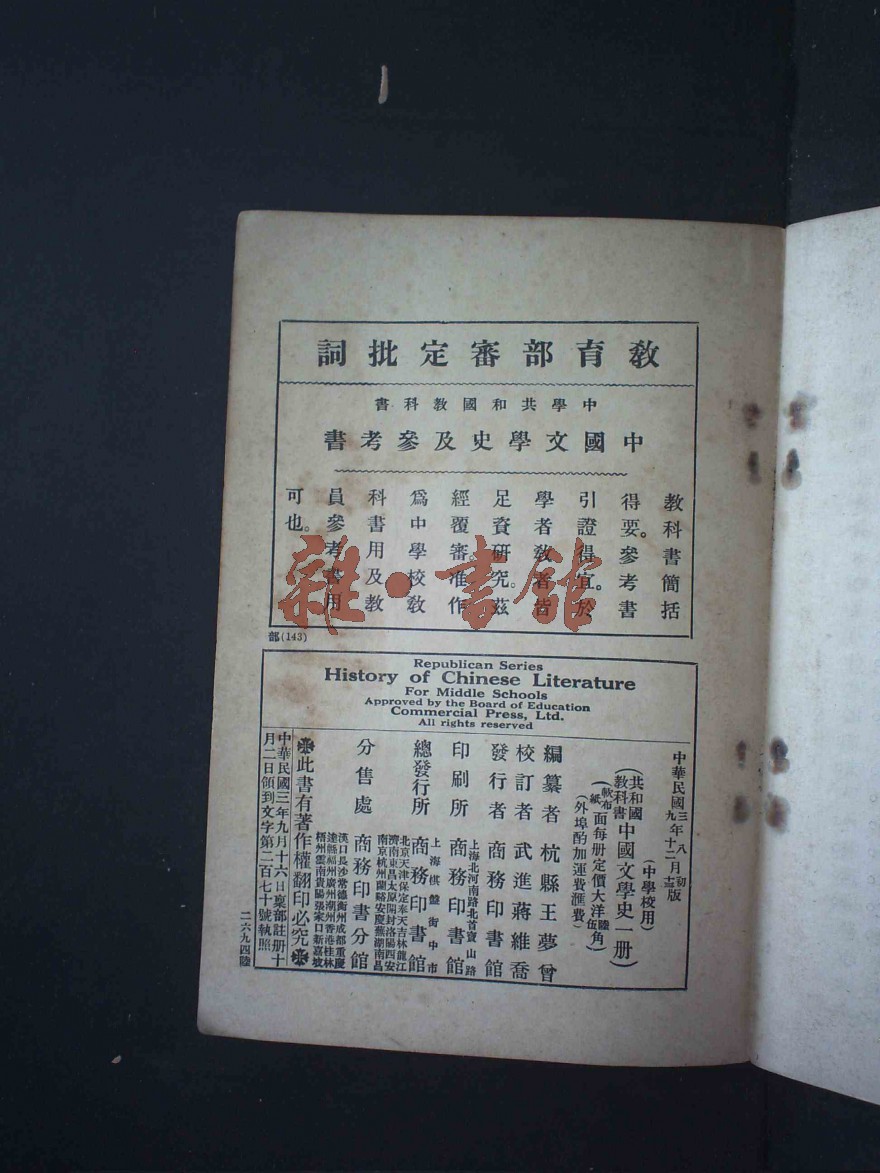 教育部審定批詞
中學共和國教科書
中國文學史及參考書
教科書簡括
得要。參考書
引證得宜。於
學者教者皆
足資研究。茲
經覆審。准作
爲中學校教
科書用及教
員參考書用
可也。
部(143)
Republican Series
History of Chinese Literature
For Middle Schools
Approved by the Board of Education
Commercial Press, Ltd.
All rights reserved
中華民國三年八月初版
(中學校用)
(共和國教科書中國文學史一册)
(軟布紙面每册定價大洋陸伍角)
(外埠酌加運費滙費)
編纂者 杭縣王夢曾
校訂者 武進蔣維喬
發行者 商務印書館
上海北河南路北首寶山路
印刷所 商務印書館
上海棋盤街中市
總發行所 商務印書館
北京天津保定奉天吉林龍江
濟南東昌太原開封洛陽西安
南京杭州蘭谿安慶蕪湖南昌
分售處 商務印書分館
漢口長沙常德衡州成都重慶
達縣福州廣州潮州香港桂林
梧州雲南貴陽張家口新嘉坡
此書有著作權翻印必究
中華民國三年九月十六日稟部註册十
月二日領到文字第二百七十號執照
二六九四陸
雜·書館